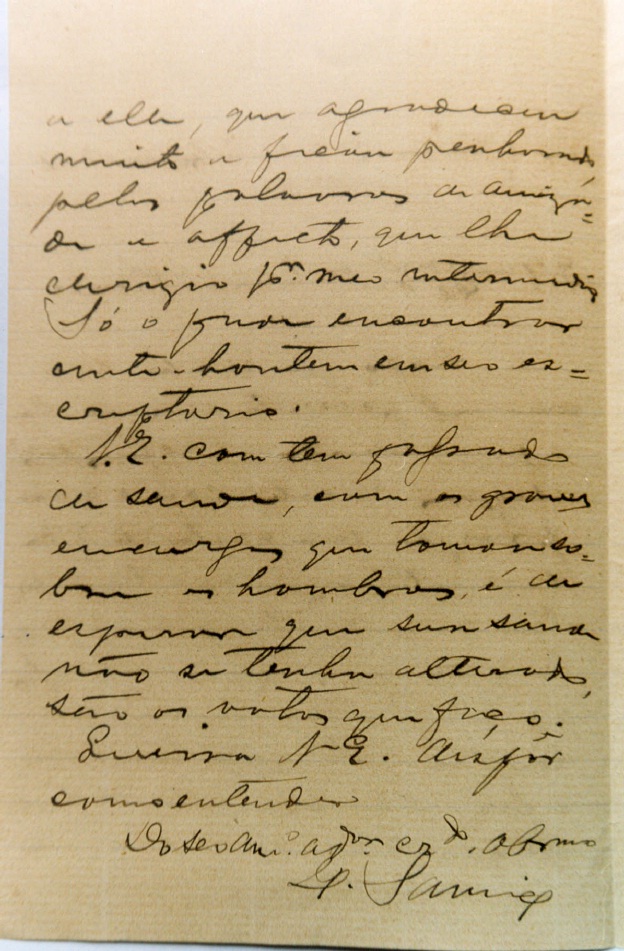 a ella, que agradeceu
muito e ficou penhorado
pelas palavras de amiza=
de e affecto, que lhe
dirigio pr. meo intermedio
Só o pude encontrar
ante-hontem em seo es=
criptorio.
V. E. com tem passado
de saude, com os graves
encargos que tomou so=
bre os hombros, é de
esperar que sua saude
não se tenha alterado,
são os votos que faço.
Queira V. E. dispôr
como entender
Do seo amo. ador. crdo. obrmo